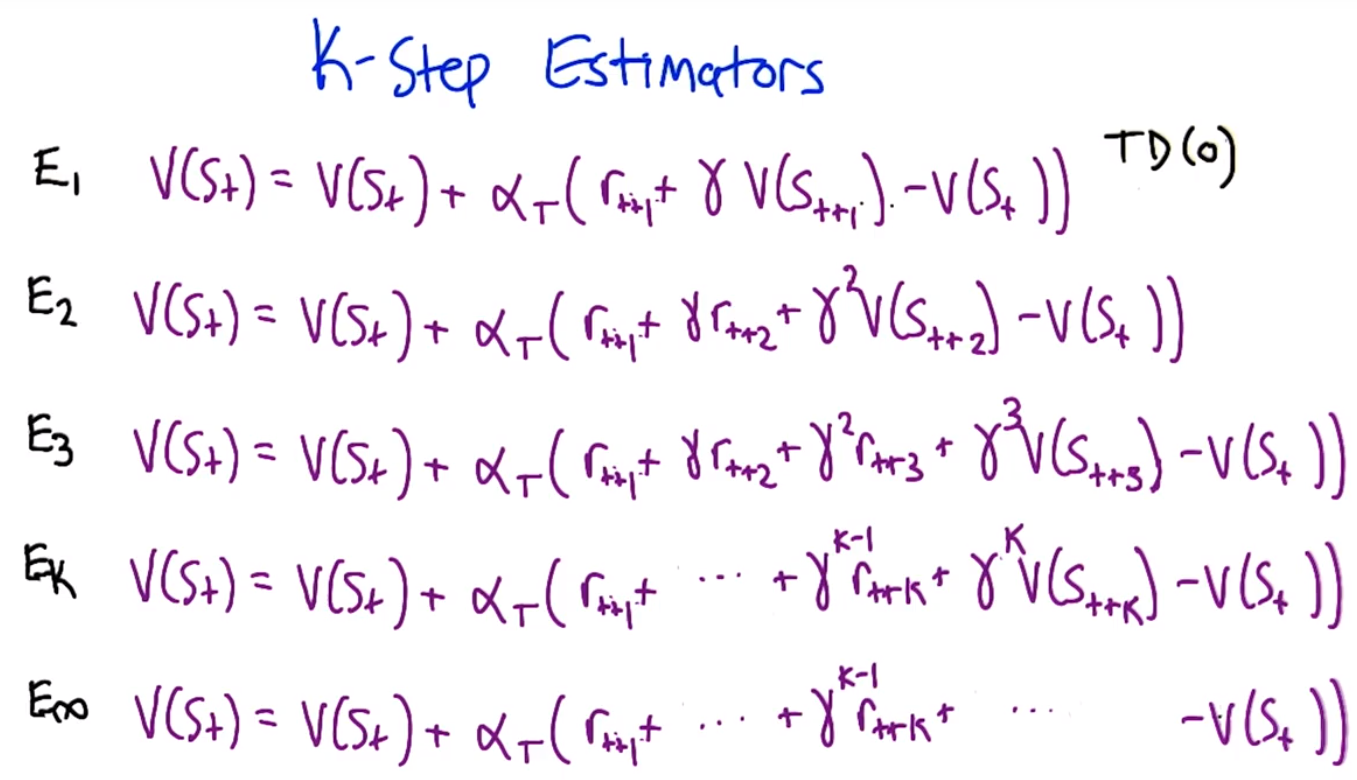 K-Step Estimators
E₁ V(Sₜ) = V(Sₜ) + α_T(rₜ₊₁ + γ V(Sₜ₊₁) - V(Sₜ)) TD(0)
E₂ V(Sₜ) = V(Sₜ) + α_T(rₜ₊₁ + γrₜ₊₂ + γ²V(Sₜ₊₂) - V(Sₜ))
E₃ V(Sₜ) = V(Sₜ) + α_T(rₜ₊₁ + γrₜ₊₂ + γ²rₜ₊₃ + γ³V(Sₜ₊₃) - V(Sₜ))
E_K V(Sₜ) = V(Sₜ) + α_T(rₜ₊₁ + ... + γ^{K-1} r_{t+K} + γ^K V(S_{t+K}) - V(Sₜ))
E_∞ V(Sₜ) = V(Sₜ) + α_T(rₜ₊₁ + ... + γ^{K-1} r_{t+K} + ... - V(Sₜ))